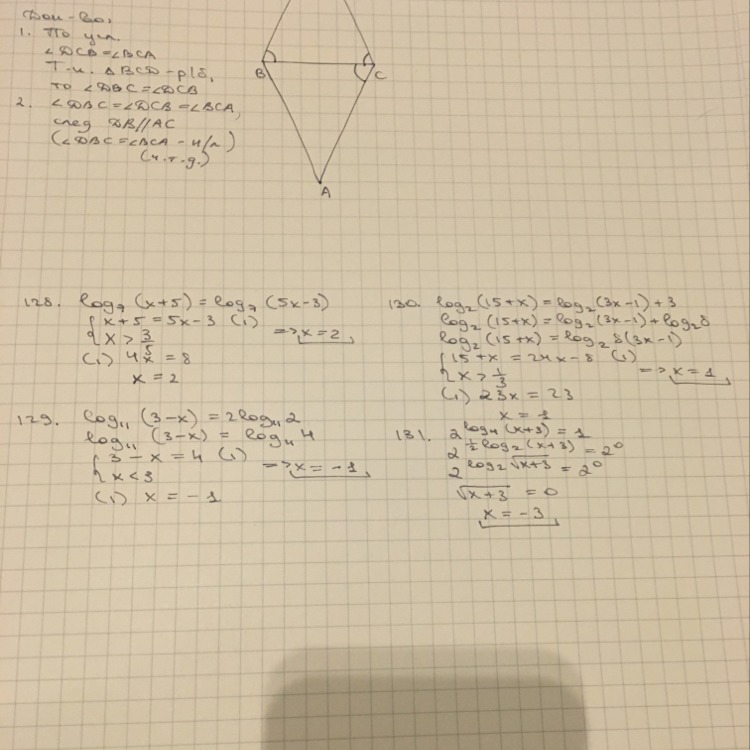 Док-во:
1. По усл.
∠DCB = ∠BCA
Т.к. ΔBCD - р/б,
то ∠DBC = ∠DCB
2. ∠DBC = ∠DCB = ∠BCA,
след DB//AC
(∠DBC = ∠BCA - н/л)
(ч.т.д.)
B
C
A
128. log₇(x+5) = log₇(5x-3)
{ x+5 = 5x-3 (1)
{ x > 3/5 => x = 2
(1) 4x = 8
x = 2
129. log₁₁(3-x) = 2log₁₁2
log₁₁(3-x) = log₁₁4
{ 3-x = 4 (1)
{ x < 3 => x = -1
(1) x = -1
130. log₂(15+x) = log₂(3x-1) + 3
log₂(15+x) = log₂(3x-1) + log₂8
log₂(15+x) = log₂8(3x-1)
{ 15+x = 24x-8 (1)
{ x > 1/3 => x = 1
(1) 23x = 23
x = 1
131. 2^(log₄(x+3)) = 1
2^(½log₂(x+3)) = 2⁰
2^(log₂√(x+3)) = 2⁰
√(x+3) = 0
x = -3